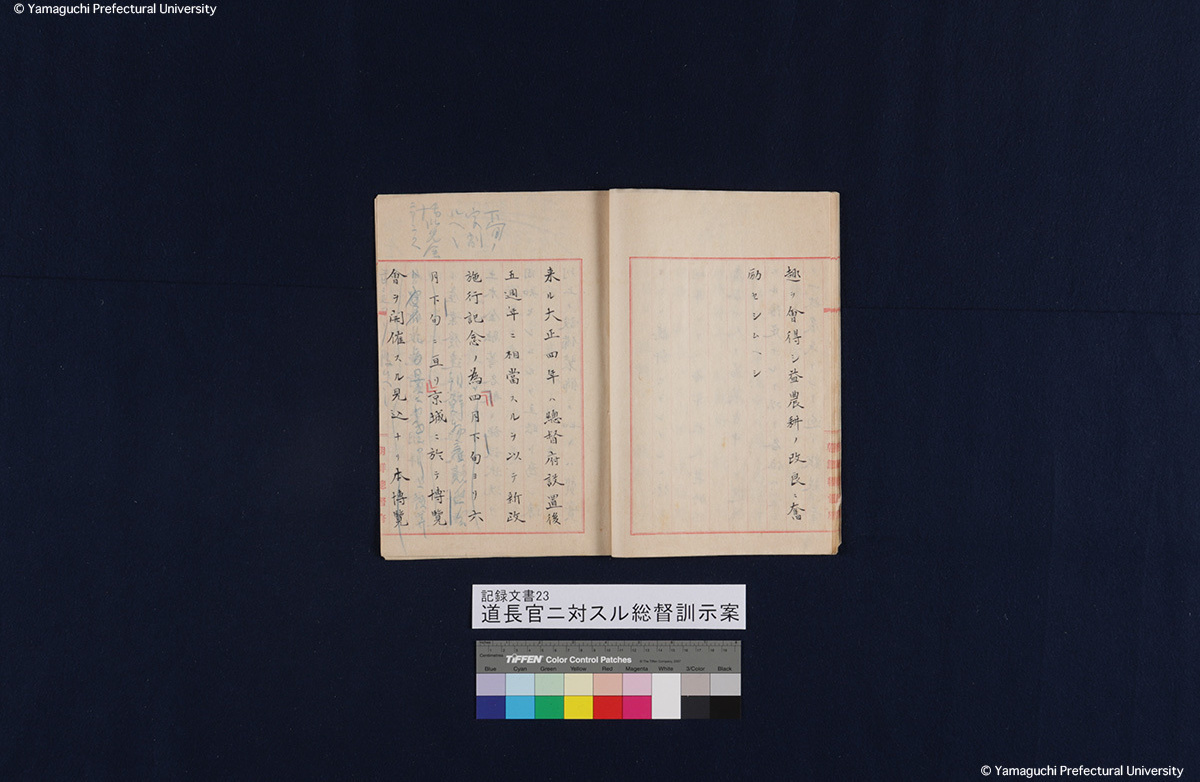 © Yamaguchi Prefectural University
趣ヲ會得シ益農耕ノ改良ニ奮
励セシムヘシ
来ル大正四年ハ總督府設置後
五週年ニ相當スルヲ以テ新政
施行記念ノ為四月下旬ヨリ六
月下旬ニ亘リ京城ニ於テ博覧
會ヲ開催スル見込ナリ本博覧
記録文書23
道長官ニ対スル総督訓示案
TIFFEN Color Control Patches
Blue Cyan Green Yellow Red Magenta White 3/Color Black
© Yamaguchi Prefectural University